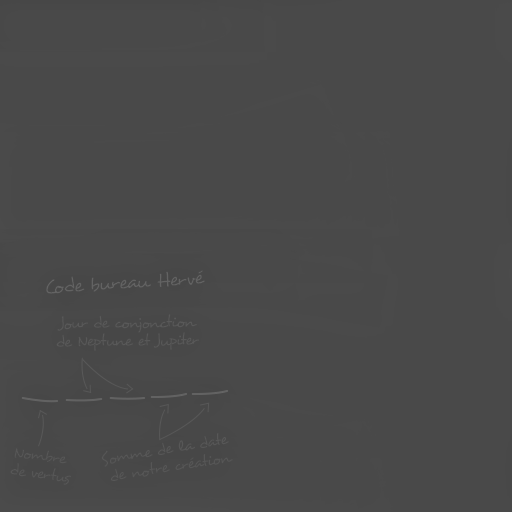 Code bureau Hervé
Jour de conjonction
de Neptune et Jupiter
Nombre
de vertus
Somme de la date
de notre création